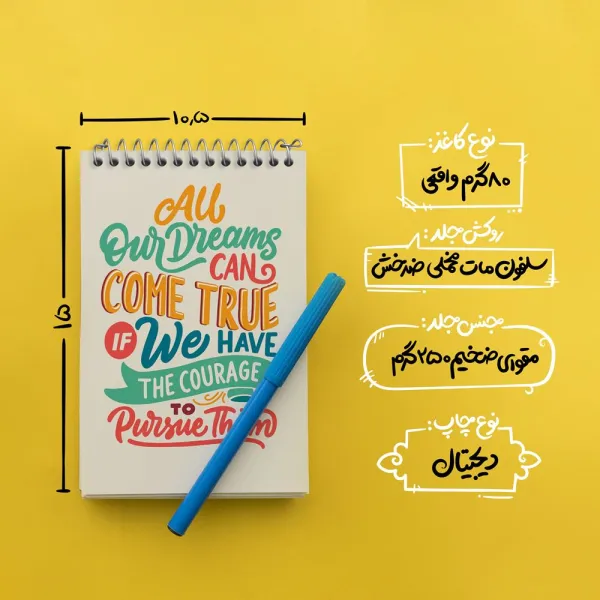 ۱۰,۵
۱۵
All
Our Dreams
CAN
COME TRUE
IF We HAVE
THE COURAGE
TO
Pursue Them
نوع کاغذ:
۸۰گرم واقعی
روکش جلد:
سلفون مات مخملی ضدخش
جنس جلد:
مقوای ضخیم ۲۵۰گرم
نوع چاپ:
دیجیتال